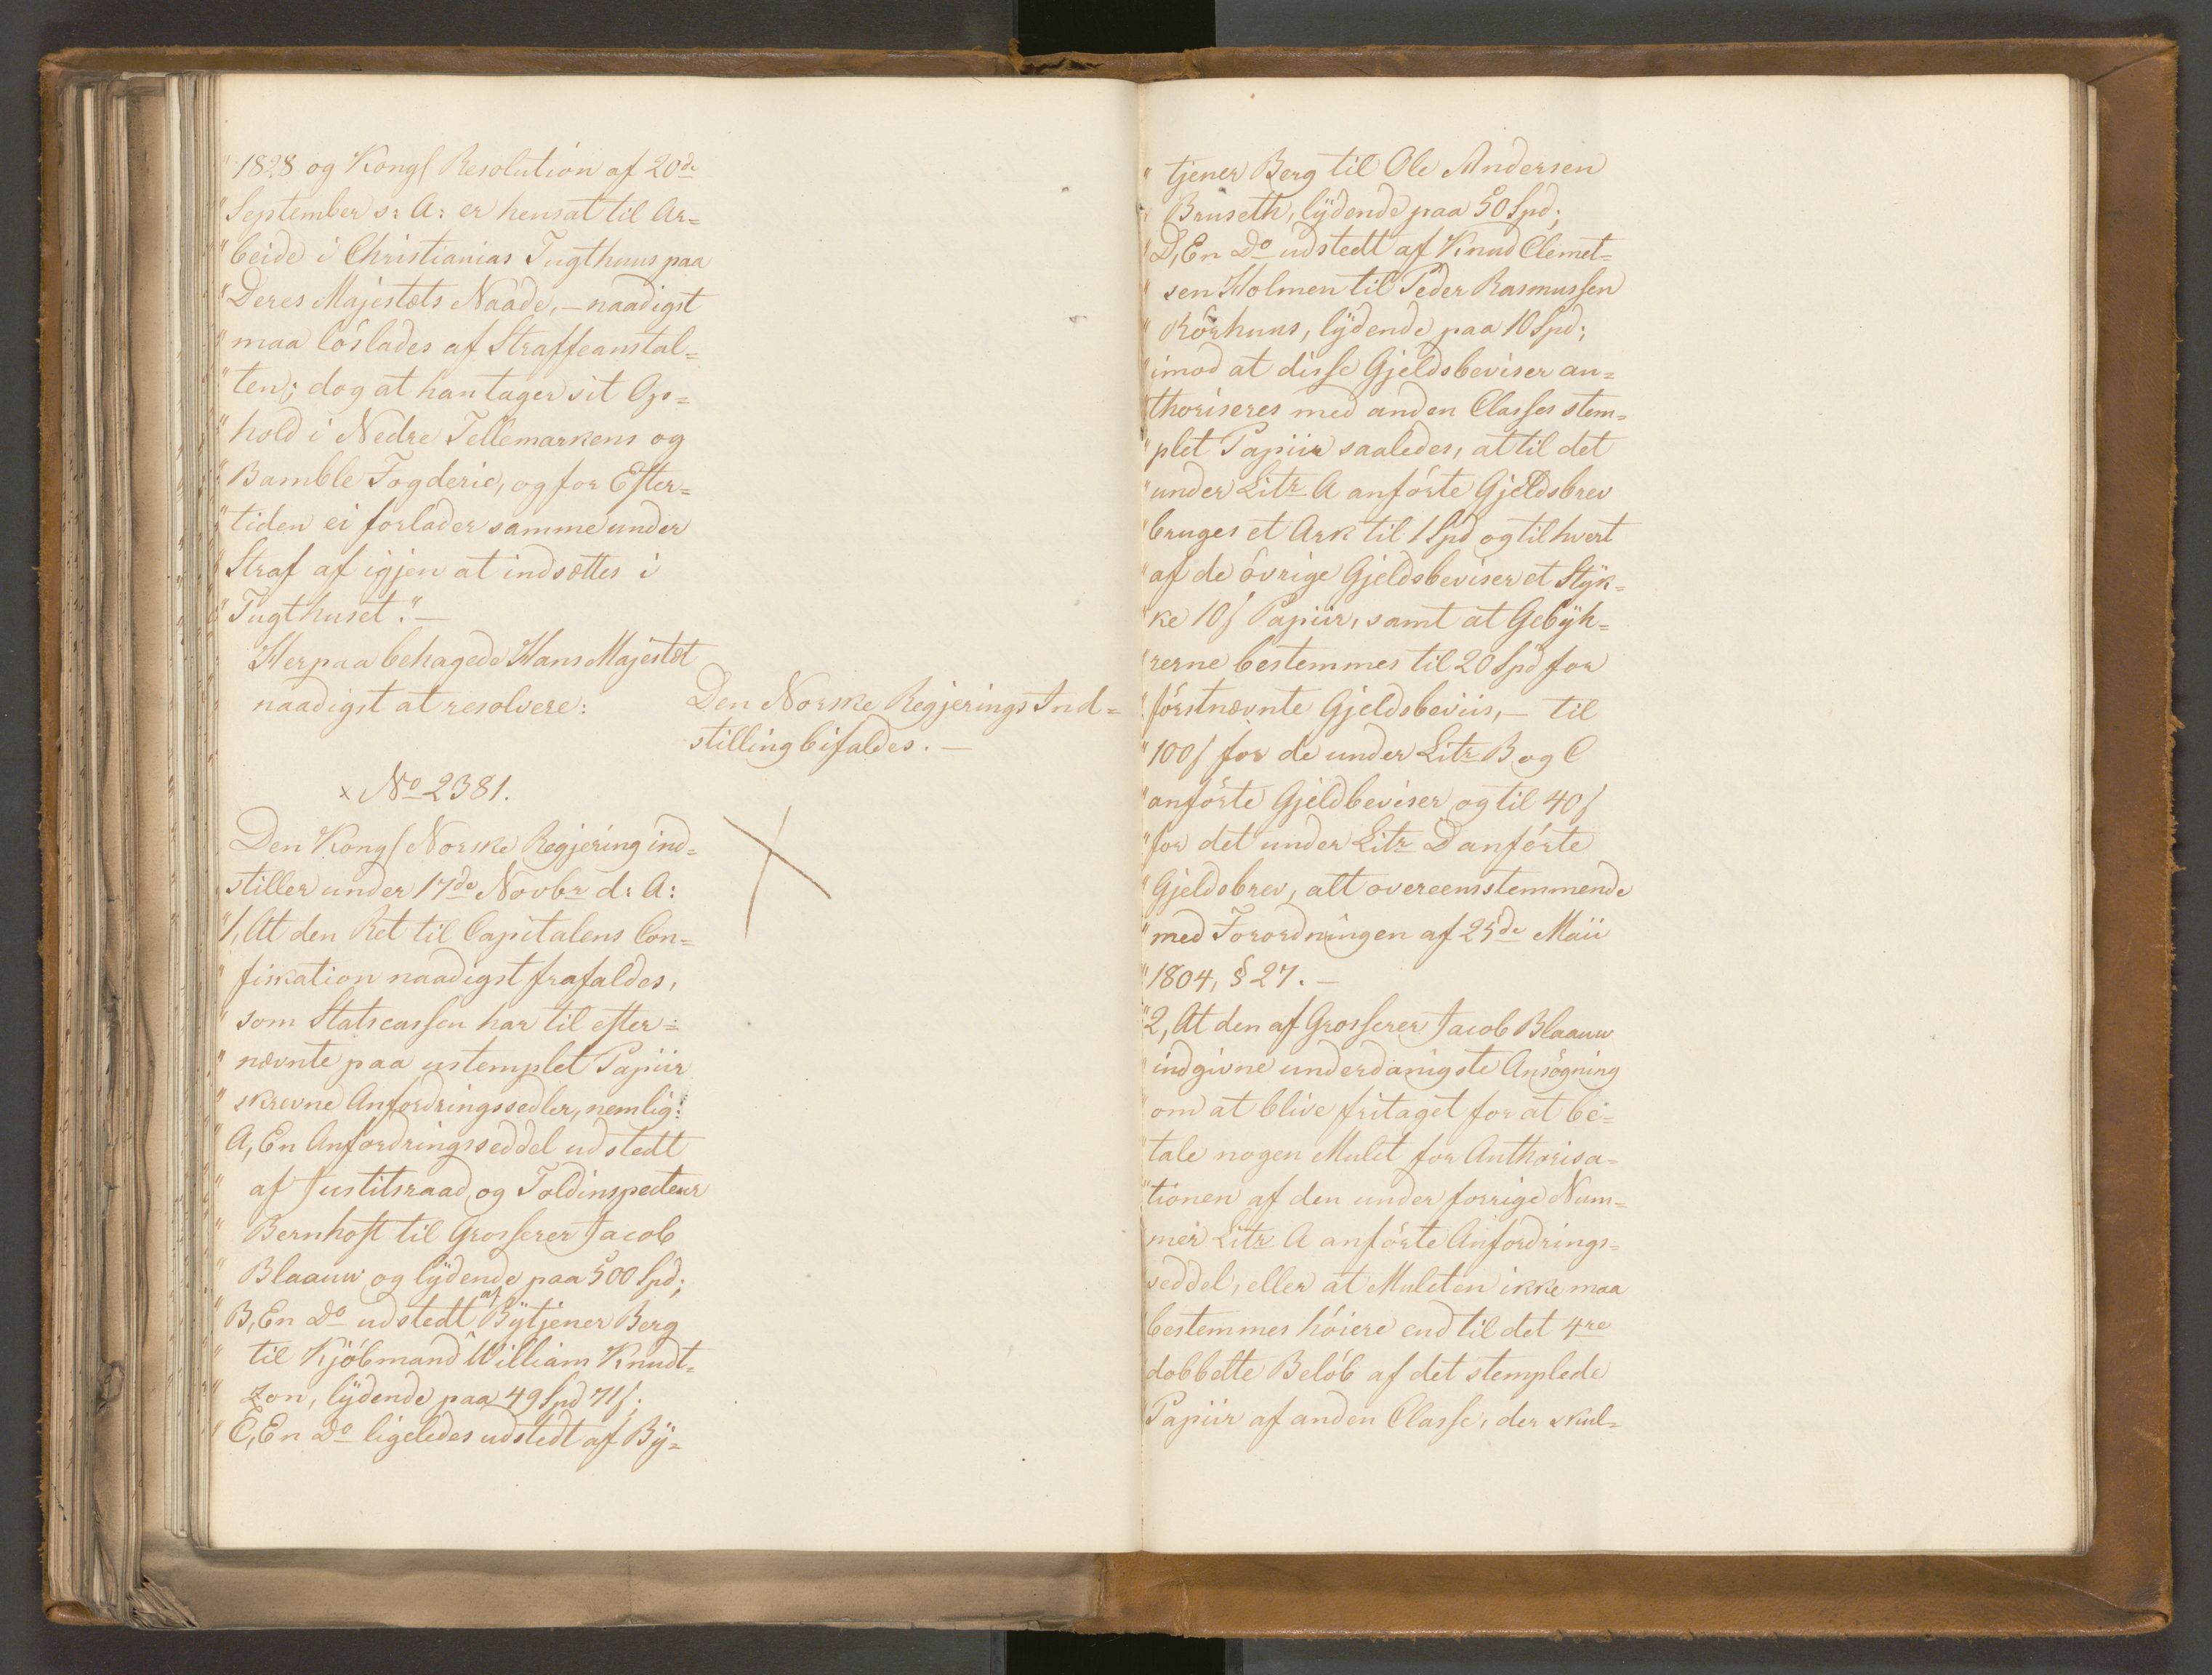 "1828 og Kongl Resolution af 20de
"September s: A: er hensat til Ar=
"beide i Christianias Tugthuus paa
"Deres Majestæts Naade, – naadigst
"maa löslades af Straffeanstal=
"ten; dog at han tager sit Op=
"hold i Nedre Tellemarkens og
"Bamble Fogderie, og for Efter=
"tiden ei forlader samme under
"Straf af igjen at indsættes i
"Tugthuset." –
Herpaa behagede Hans Majestæt
naadigst at resolvere:
Den Norske Regjerings Ind=
stilling bifaldes. –
x No 2381.
Den Kongl Norske Regjering ind=
stiller under 17de Novbr d: A:
"1, At den Ret til Capitalens Con=
"fiskation naadigst frafaldes,
"som Statscassen har til efter=
"nævnte paa ustemplet Papiir
"skrevne Anfordringssedler, nemlig:
"A, En Anfordringsseddel udstedt
"af Justitsraad og Toldinspecteur
"Bernhoft til Grosserer Jacob
"Blaauw og lydende paa 500 Spd;
"B, En Do udstedt af Bytjener Berg
"til Kjöbmand William Knudt=
"zon, lydende paa 49 Spd 71 s;
"C, En Do ligeledes udstedt af By=
"tjener Berg til Ole Andersen
"Bruseth, lydende paa 50 Spd;
"D, En Do udstedt af Knud Clemet=
"sen Holmen til Peder Rasmussen
"Rörhuus, lydende paa 10 Spd;
"imod at disse Gjeldsbeviser au=
"thoriseres med anden Classes stem=
"plet Papiir saaledes, at til det
"under Litr A anförte Gjeldsbrev
"bruges et Ark til 1 Spd og til hvert
"af de övrige Gjeldsbeviser et Styk=
"ke 10 s Papiir, samt at Gebyh=
"rerne bestemmes til 20 Spd for
"förstnævnte Gjeldsbeviis, – til
"100 s for de under Litr B og C
"anförte Gjeldbeviser og til 40 s
"for det under Litr D anförte
"Gjeldsbrev, alt overeensstemmende
"med Forordningen af 25de Maii
"1804, § 27. –
"2, At den af Grosserer Jacob Blaauw
"indgivne underdanigste Ansögning
"om at blive fritaget for at be=
"tale nogen Mulct for Authorisa=
"tionen af den under forrige Num=
"mer Litr A anförte Anfordrings=
"seddel, eller at Mulcten ikke maa
"bestemmes höiere end til det 4re
"dobbelte Belöb af det stemplede
"Papiir af anden Classe, der skul=